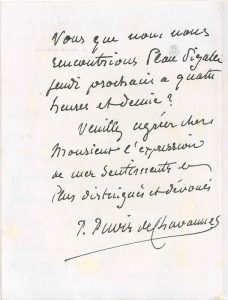 Vous que nous nous
rencontrions Place Pigalle
jeudi prochain a quatre
heures et demie ?
Veuillez agréer cher
Monsieur l'expression
de mes sentiments les
plus distingués et dévoués
P. Puvis de Chavannes